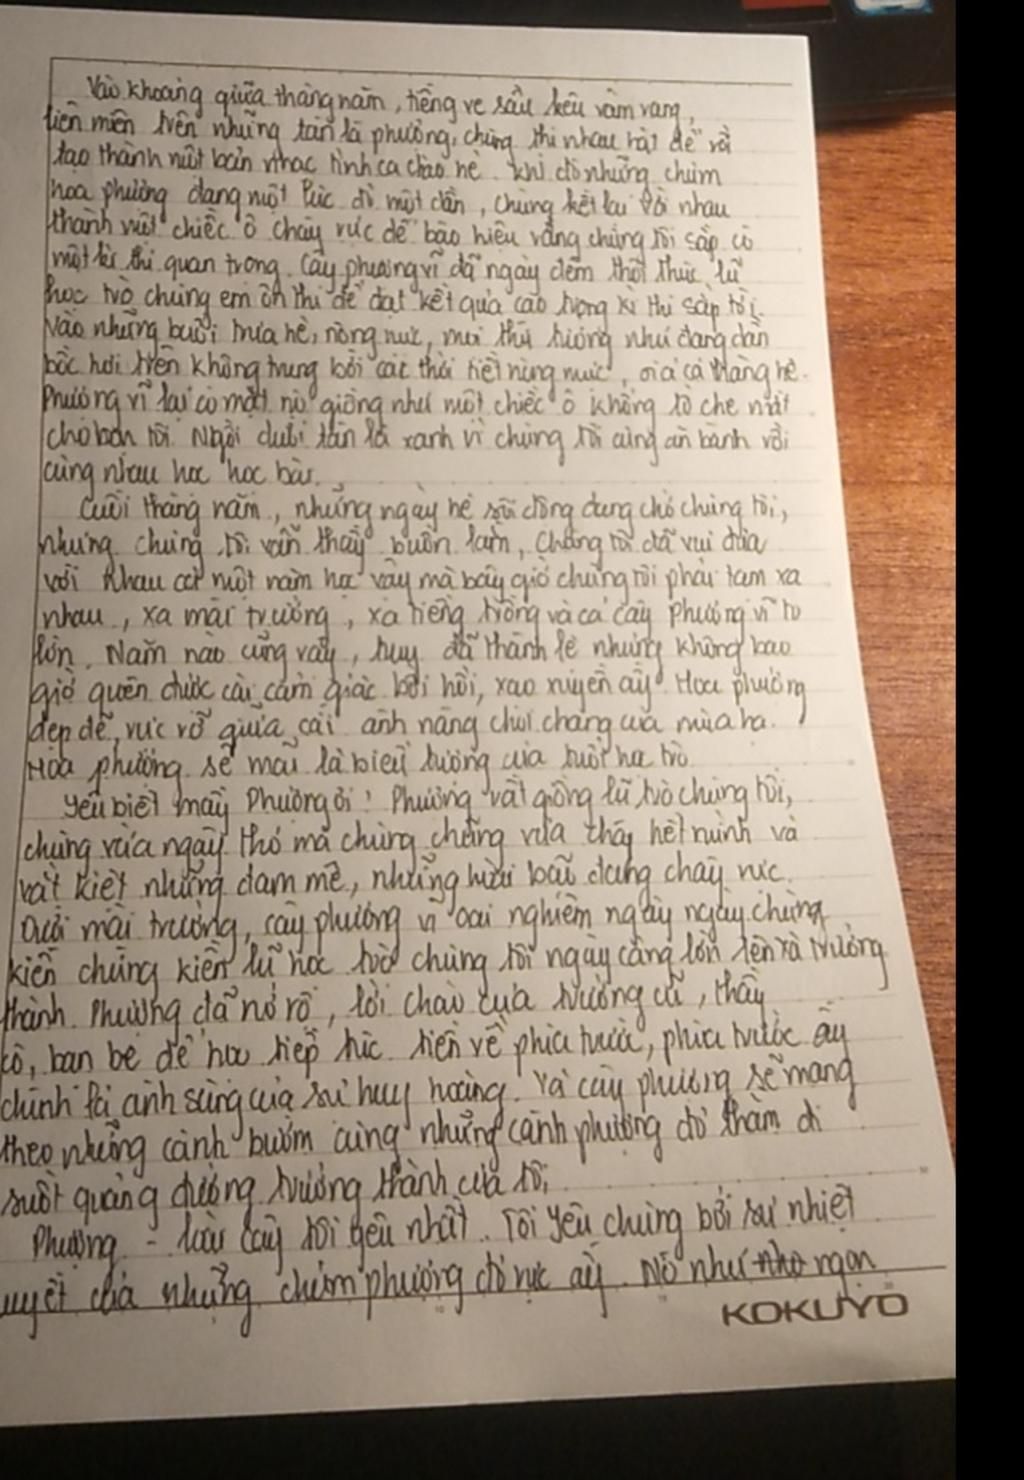 Vào khoảng giữa tháng năm, tiếng ve sầu kêu râm ran,
liên miên trên những tán lá phượng, chúng thi nhau hát để rồi
tạo thành một bản nhạc tình ca chào hè. Khi đó những chùm
hoa phượng đang một lúc đỏ một dần, chúng kết lại với nhau
thành một chiếc ô cháy rực để báo hiệu rằng chúng tôi sắp có
một kì thi quan trọng. Cây phượng vĩ đã ngày đêm thôi thúc lũ
học trò chúng em ôn thi để đạt kết quả cao trong kì thi sắp tới.
Vào những buổi trưa hè, nóng nực, mọi thứ tưởng như đang dần
bốc hơi trên không trung bởi các thời tiết nóng nực, cả tháng hè.
Phượng vĩ lại có mặt nó giống như một chiếc ô khổng lồ che mát
cho bọn tôi. Ngồi dưới tán lá xanh vì chúng tôi cùng ăn bánh rồi
cùng nhau học học bài.
Cuối tháng năm, những ngày hè sôi động đang chờ chúng tôi,
nhưng chúng tôi vẫn thấy buồn lắm, chúng tôi đã vui đùa
với nhau cả một năm học vậy mà bây giờ chúng tôi phải tạm xa
nhau, xa mái trường, xa tiếng trống và cả cây phượng vĩ to
lớn. Năm nào cũng vậy, tuy đã thành lệ nhưng không bao
giờ quên được cái cảm giác bồi hồi, xao xuyến ấy. Hoa phượng
đẹp đẽ, rực rỡ giữa cái ánh nắng chói chang của mùa hạ.
Hoa phượng sẽ mãi là biểu tượng của tuổi học trò.
Yêu biết mấy Phượng ơi! Phượng vất giống lũ trò chúng tôi,
chúng vừa ngây thơ mà chúng chẳng vừa cháy hết mình và
vắt kiệt những đam mê, những hoài bão đang cháy rực.
Dưới mái trường, cây phượng vĩ oai nghiêm ngày ngày chứng
kiến chứng kiến lũ học trò chúng tôi ngày càng lớn lên và trưởng
thành. Phượng đã nở rồ, lời chào của trường cũ, thầy
cô, bạn bè để học tiếp tục tiến về phía trước, phía trước ấy
chính là ánh sáng của sự huy hoàng. Và cây phượng sẽ mang
theo những cánh bướm cùng những cánh phượng đỏ thắm đi
suốt quãng đường trưởng thành của tôi.
Phượng - loài cây tôi yêu nhất. Tôi yêu chúng bởi sự nhiệt
huyết của những chùm phượng đỏ rực ấy. Nó như ngọn
KOKUYO